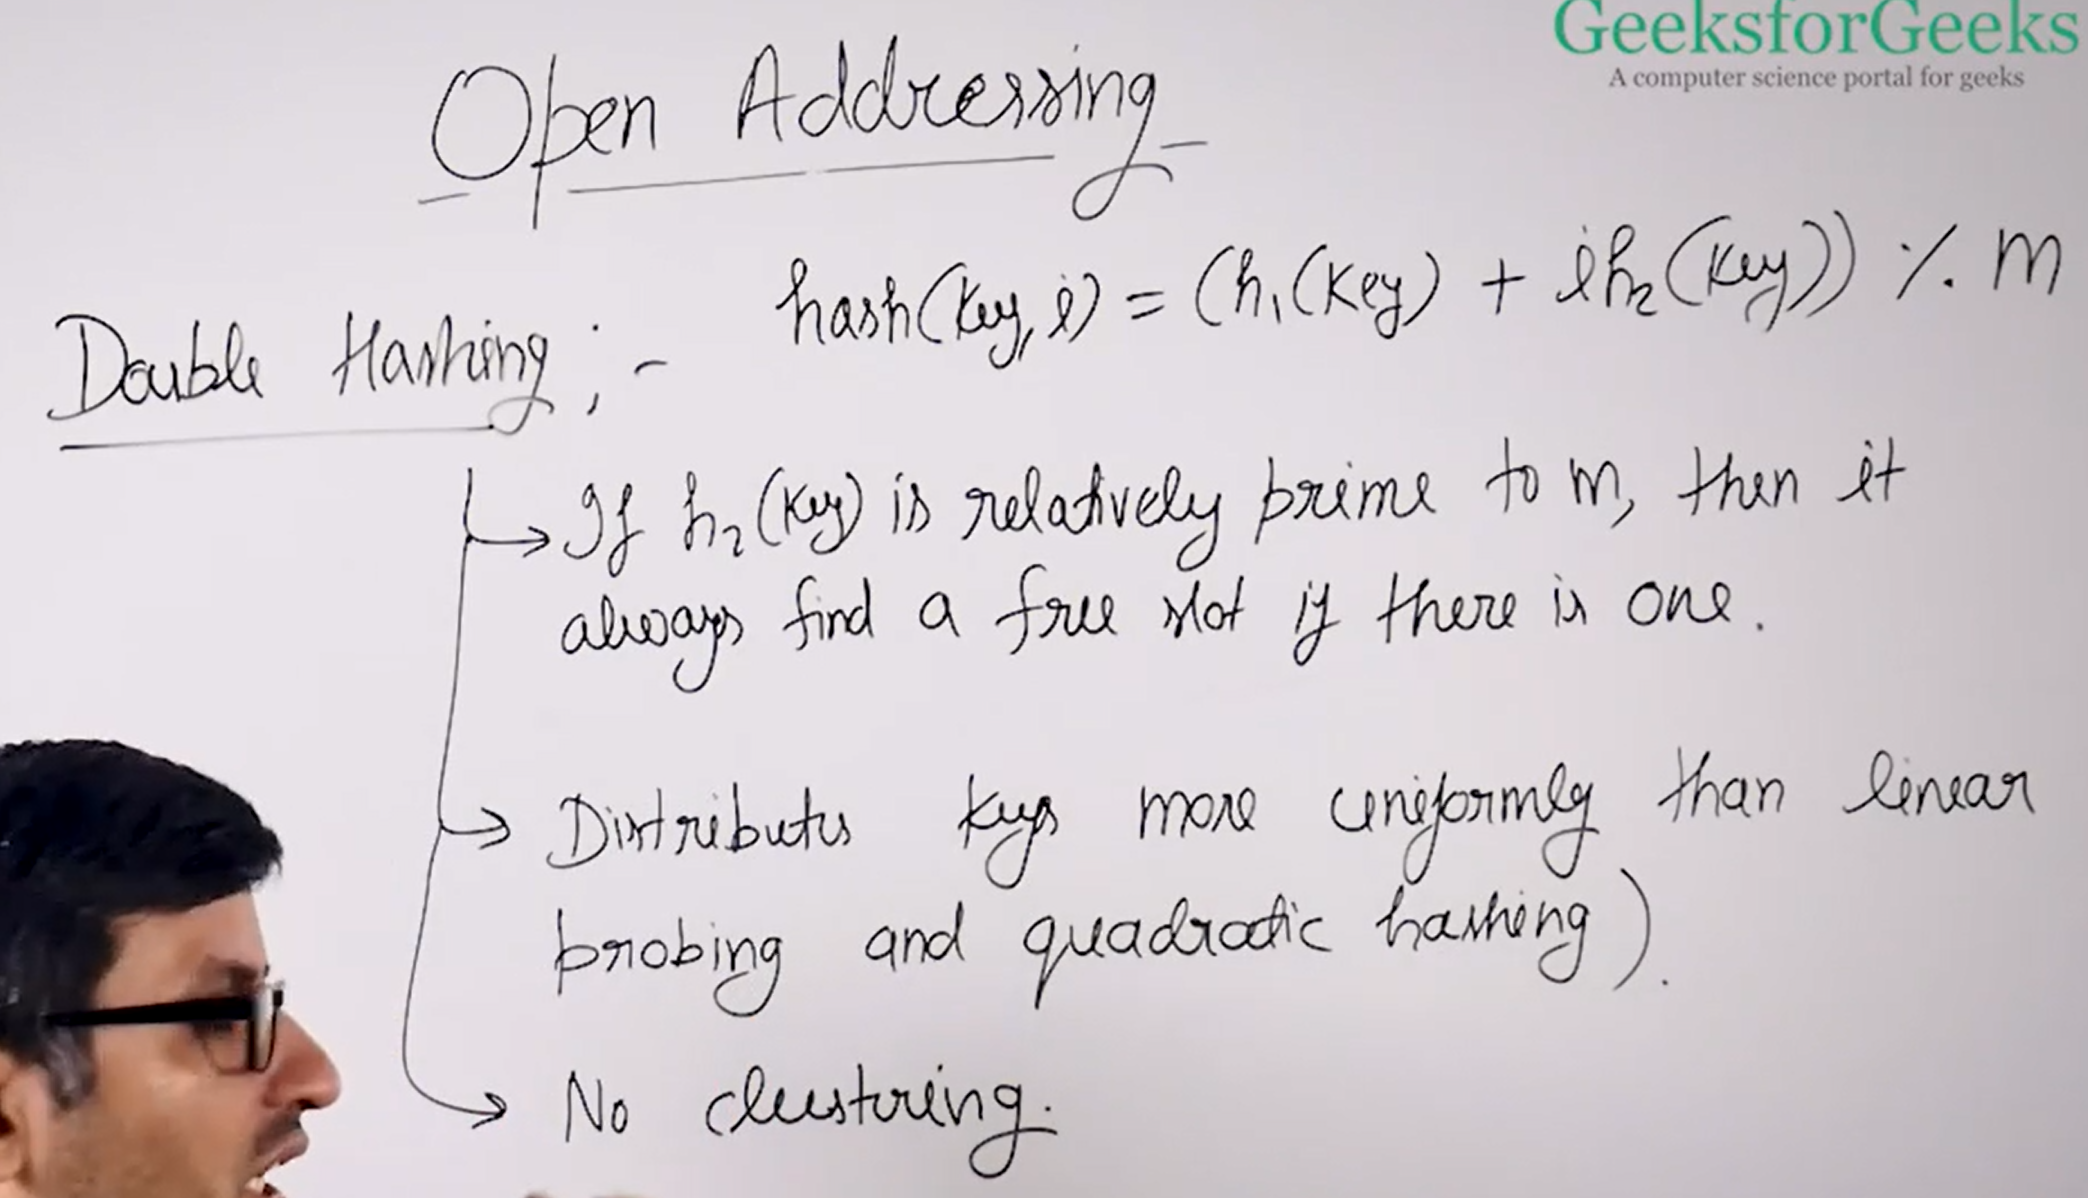 GeeksforGeeks
A computer science portal for geeks
Open Addressing
hash(key, i) = (h₁(key) + i h₂(key)) % m
Double Hashing :-
If h₂(key) is relatively prime to m, then it
always find a free slot if there is one.
Distributes keys more uniformly than linear
probing and quadratic hashing).
No clustering.